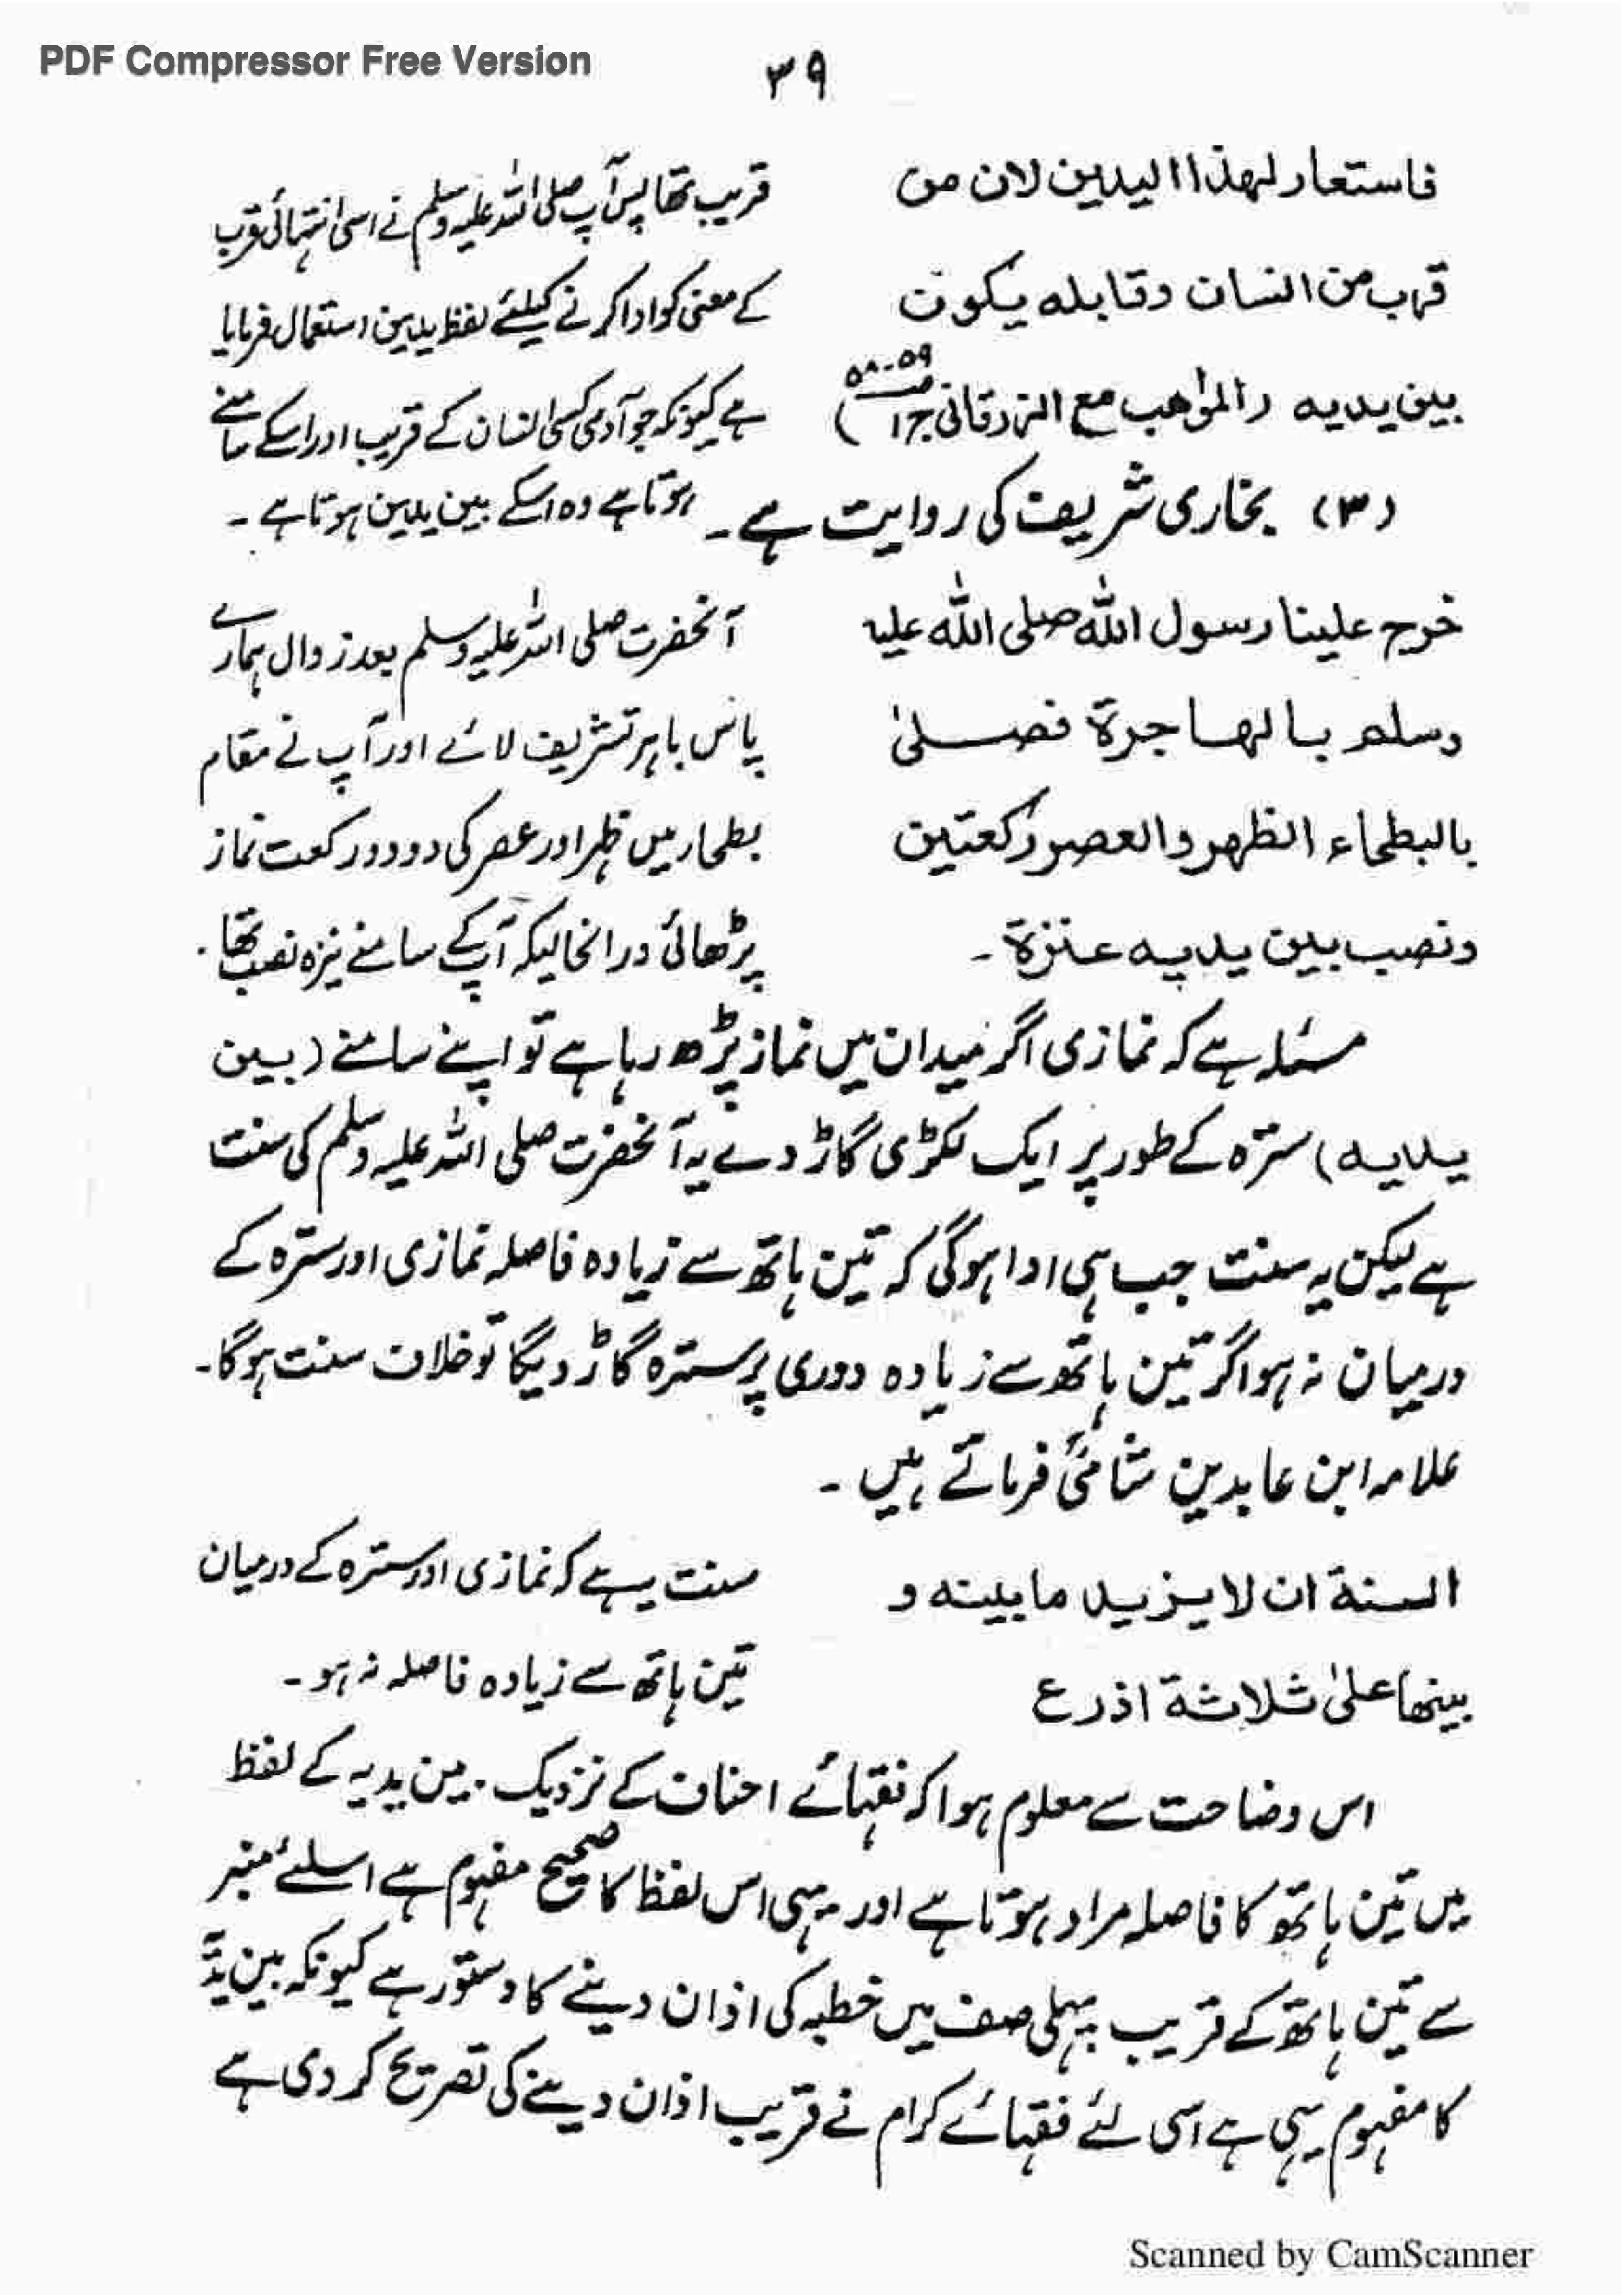 PDF Compressor Free Version
٣٩
فاستعار لهذا اليدين لان من
قرب من انسان وقابله يكون
بين يديه (المواهب مع الزرقانی ج١ ص ٥٨-٥٩)
قریب تھا پس آپ صلی اللہ علیہ وسلم نے اسی انتہائی قرب
کے معنی کو ادا کرنے کیلئے لفظ یدین استعمال فرمایا
ہے کیونکہ جو آدمی کسی انسان کے قریب اور اسکے سامنے
ہوتا ہے وہ اسکے بین یدین ہوتا ہے ۔
(٣) بخاری شریف کی روایت ہے ۔
خرج علينا رسول الله صلى الله عليه
وسلم بالهاجرة فصلىٰ
بالبطحاء الظهر والعصر ركعتين
ونصب بين يديه عنزة ۔
آنحضرت صلی اللہ علیہ وسلم بعد زوال ہمارے
پاس باہر تشریف لائے اور آپ نے مقام
بطحار میں ظہر اور عصر کی دو دو رکعت نماز
پڑھائی درانحالیکہ آپ کے سامنے نیزہ نصب تھا ۔
مسئلہ ہے کہ نمازی اگر میدان میں نماز پڑھ رہا ہے تو اپنے سامنے (بین
یدیہ) سترہ کے طور پر ایک لکڑی گاڑ دے یہ آنحضرت صلی اللہ علیہ وسلم کی سنت
ہے لیکن یہ سنت جب ہی ادا ہوگی کہ تین ہاتھ سے زیادہ فاصلہ نمازی اور سترہ کے
درمیان نہ ہو اگر تین ہاتھ سے زیادہ دوری پر سترہ گاڑ دیگا تو خلاف سنت ہوگا ۔
علامہ ابن عابدین شامیؒ فرماتے ہیں ۔
السنة ان لا يزيد ما بينه و
بينها علىٰ ثلاثة اذرع
سنت یہ ہے کہ نمازی اور سترہ کے درمیان
تین ہاتھ سے زیادہ فاصلہ نہ ہو ۔
اس وضاحت سے معلوم ہوا کہ فقہائے احناف کے نزدیک بین یدیہ کے لفظ
میں تین ہاتھ کا فاصلہ مراد ہوتا ہے اور یہی اس لفظ کا صحیح مفہوم ہے اسلئے منبر
سے تین ہاتھ کے قریب پہلی صف میں خطبہ کی اذان دینے کا دستور ہے کیونکہ بین یدیہ
کا مفہوم یہی ہے اسی لئے فقہائے کرام نے قریب اذان دینے کی تصریح کر دی ہے
Scanned by CamScanner